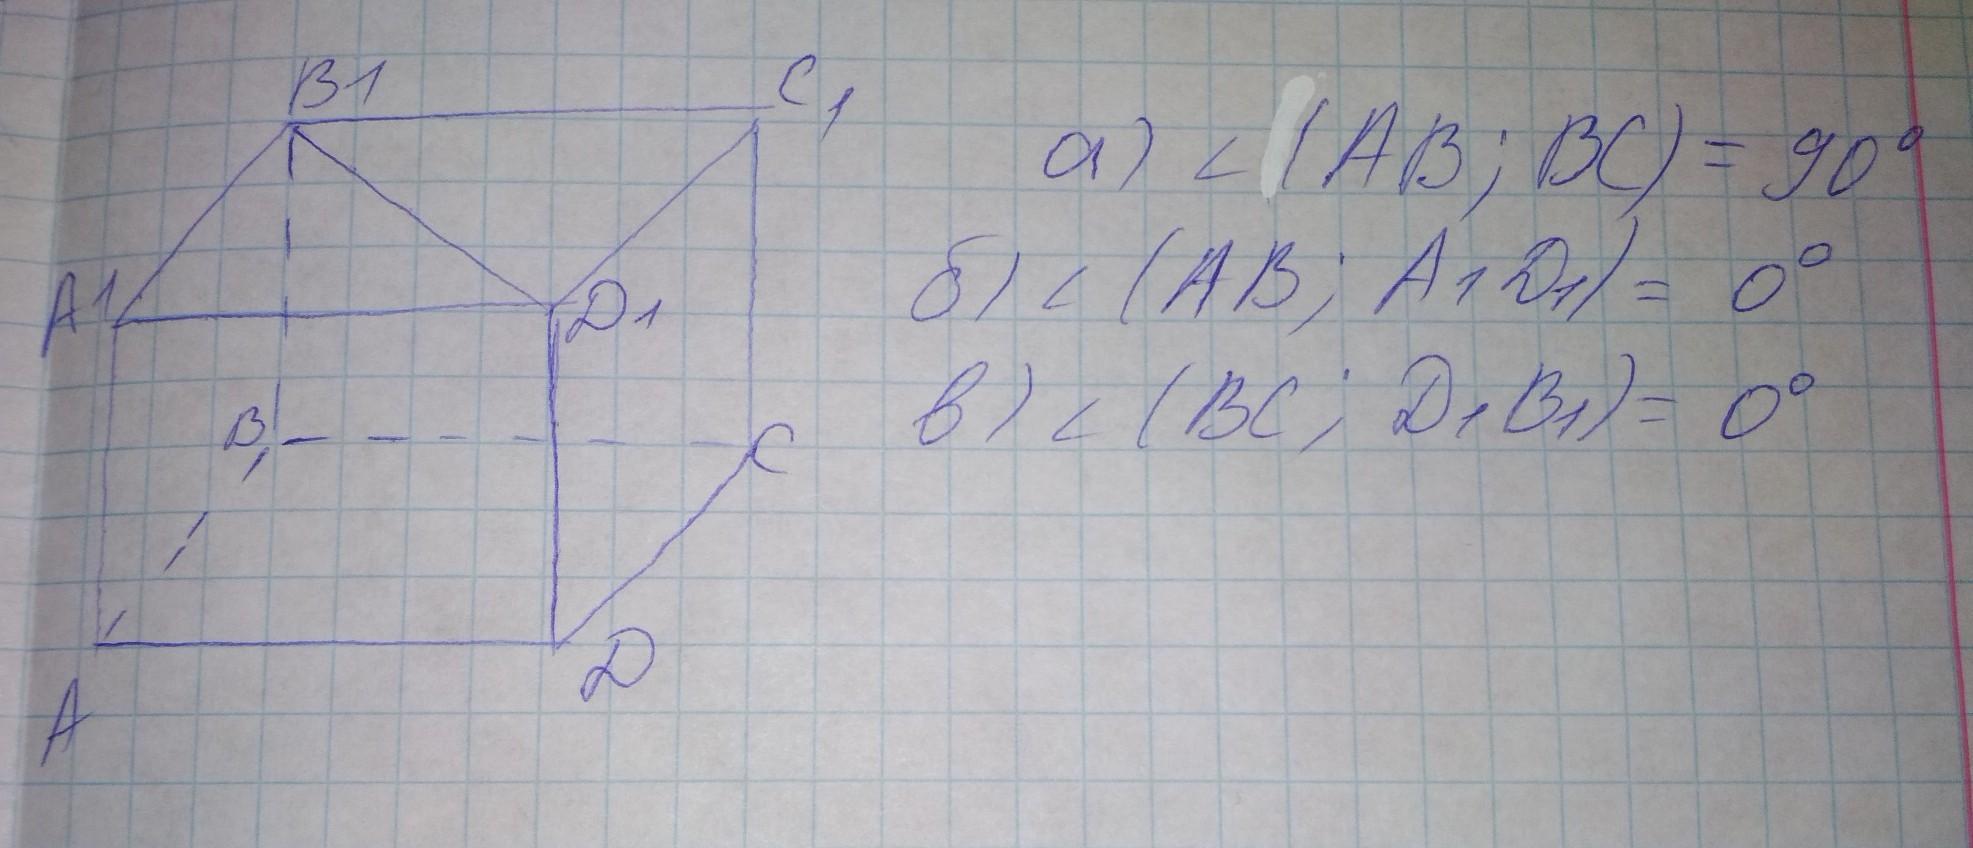 B1
C1
A1
D1
B1
C
A
D
а) < (AB; BC) = 90°
б) < (AB; A1D1) = 0°
в) < (BC; D1B1) = 0°